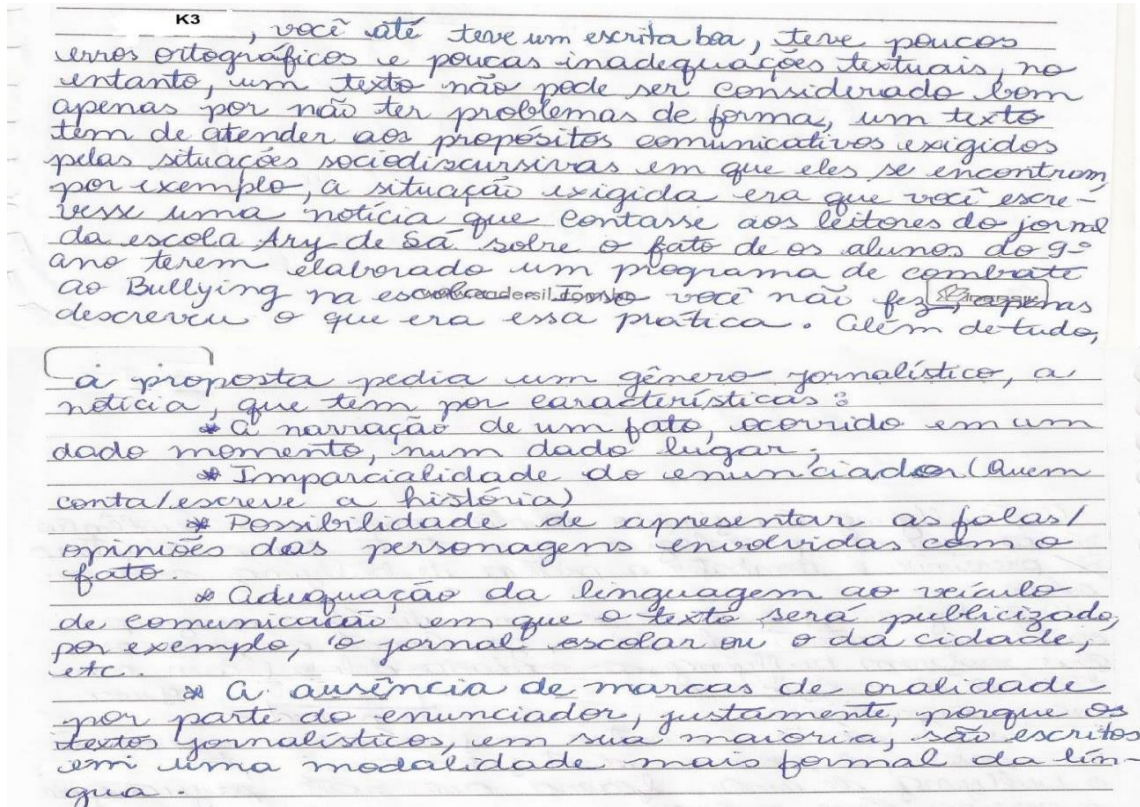 K3
, você até teve um escrita boa, teve poucos
erros ortográficos e poucas inadequações textuais, no
entanto, um texto não pode ser considerado bom
apenas por não ter problemas de forma, um texto
tem de atender aos propósitos comunicativos exigidos
pelas situações sociodiscursivas em que eles se encontram,
por exemplo, a situação exigida era que você escre-
vesse uma notícia que contasse aos leitores do jornal
da escola Ary de Sá sobre o fato de os alunos do 9º
ano terem elaborado um programa de combate
ao Bullying na você não fez, apenas
descreveu o que era essa prática. Além de tudo,
a proposta pedia um gênero jornalístico, a
notícia, que tem por características:
* A narração de um fato, ocorrido em um
dado momento, num dado lugar;
* Imparcialidade do enunciador (Quem
conta/escreve a história)
* Possibilidade de apresentar as falas/
opiniões das personagens envolvidas com o
fato.
* Adequação da linguagem ao veículo
de comunicação em que o texto será publicizado,
por exemplo, o jornal escolar ou o da cidade,
etc.
* A ausência de marcas de oralidade
por parte do enunciador, justamente, porque os
textos jornalísticos, em sua maioria, são escritos
em uma modalidade mais formal da lín-
gua.